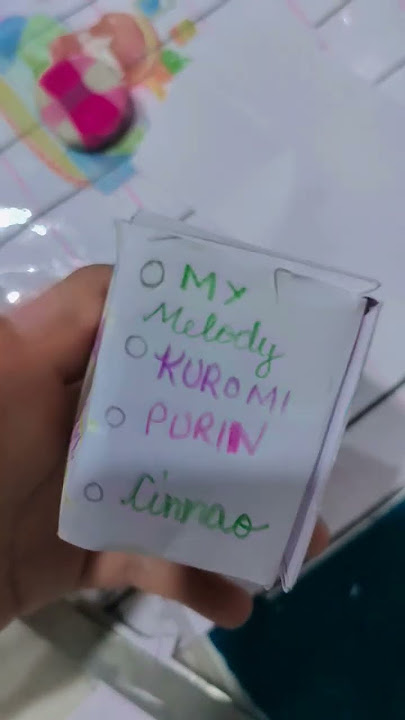 My
Melody
KUROMI
PURIN
Cinnao